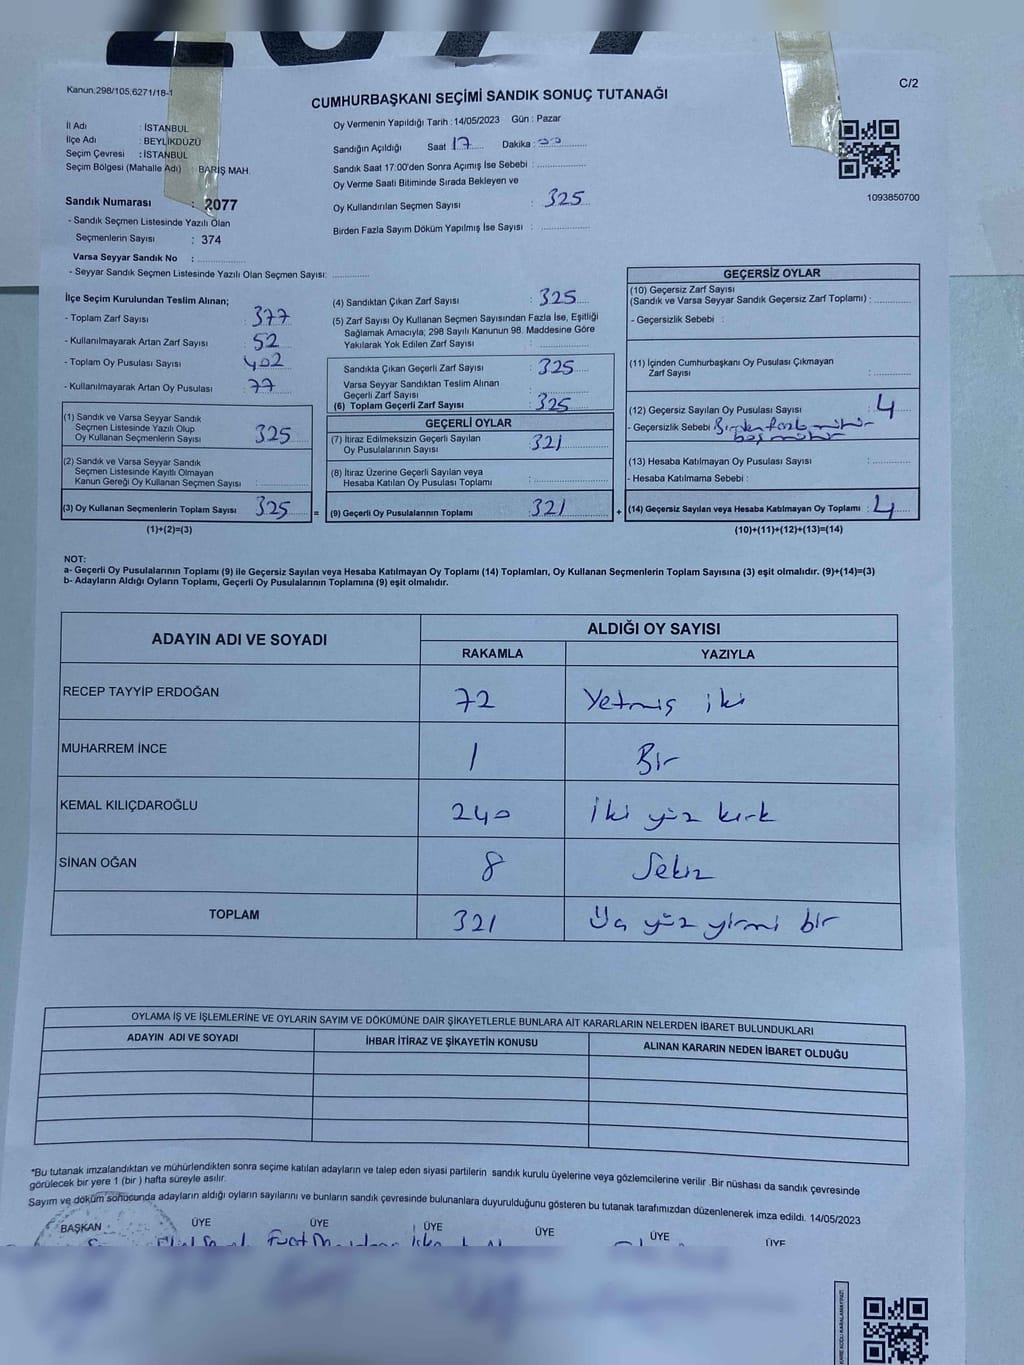 2077
Kanun.298/105,6271/18-1
C/2
CUMHURBAŞKANI SEÇİMİ SANDIK SONUÇ TUTANAĞI
İl Adı : İSTANBUL
İlçe Adı : BEYLİKDÜZÜ
Seçim Çevresi : İSTANBUL
Seçim Bölgesi (Mahalle Adı) : BARIŞ MAH.
Sandık Numarası : 2077
- Sandık Seçmen Listesinde Yazılı Olan
Seçmenlerin Sayısı : 374
Varsa Seyyar Sandık No :
- Seyyar Sandık Seçmen Listesinde Yazılı Olan Seçmen Sayısı:
Oy Vermenin Yapıldığı Tarih : 14/05/2023 Gün : Pazar
Sandığın Açıldığı Saat 17 Dakika : 00
Sandık Saat 17:00'den Sonra Açımış İse Sebebi :
Oy Verme Saati Bitiminde Sırada Bekleyen ve
Oy Kullandırılan Seçmen Sayısı : 325
Birden Fazla Sayım Döküm Yapılmış İse Sayısı :
1093850700
İlçe Seçim Kurulundan Teslim Alınan;
- Toplam Zarf Sayısı : 377
- Kullanılmayarak Artan Zarf Sayısı : 52
- Toplam Oy Pusulası Sayısı : 402
- Kullanılmayarak Artan Oy Pusulası : 77
(1) Sandık ve Varsa Seyyar Sandık
Seçmen Listesinde Yazılı Olup
Oy Kullanan Seçmenlerin Sayısı : 325
(2) Sandık ve Varsa Seyyar Sandık
Seçmen Listesinde Kayıtlı Olmayan
Kanun Gereği Oy Kullanan Seçmen Sayısı :
(3) Oy Kullanan Seçmenlerin Toplam Sayısı : 325 =
(1)+(2)=(3)
(4) Sandıktan Çıkan Zarf Sayısı : 325
(5) Zarf Sayısı Oy Kullanan Seçmen Sayısından Fazla İse, Eşitliği
Sağlamak Amacıyla, 298 Sayılı Kanunun 98. Maddesine Göre
Yakılarak Yok Edilen Zarf Sayısı :
Sandıkta Çıkan Geçerli Zarf Sayısı : 325
Varsa Seyyar Sandıktan Teslim Alınan
Geçerli Zarf Sayısı :
(6) Toplam Geçerli Zarf Sayısı : 325
GEÇERLİ OYLAR
(7) İtiraz Edilmeksizin Geçerli Sayılan
Oy Pusulalarının Sayısı : 321
(8) İtiraz Üzerine Geçerli Sayılan veya
Hesaba Katılan Oy Pusulası Toplamı :
(9) Geçerli Oy Pusulalarının Toplamı : 321 +
GEÇERSİZ OYLAR
(10) Geçersiz Zarf Sayısı
(Sandık ve Varsa Seyyar Sandık Geçersiz Zarf Toplamı) :
- Geçersizlik Sebebi :
(11) İçinden Cumhurbaşkanı Oy Pusulası Çıkmayan
Zarf Sayısı :
(12) Geçersiz Sayılan Oy Pusulası Sayısı : 4
- Geçersizlik Sebebi : Birden fazla mühür
boş mühür
(13) Hesaba Katılmayan Oy Pusulası Sayısı :
- Hesaba Katılmama Sebebi :
(14) Geçersiz Sayılan veya Hesaba Katılmayan Oy Toplamı : 4
(10)+(11)+(12)+(13)=(14)
NOT:
a- Geçerli Oy Pusulalarının Toplamı (9) ile Geçersiz Sayılan veya Hesaba Katılmayan Oy Toplamı (14) Toplamları, Oy Kullanan Seçmenlerin Toplam Sayısına (3) eşit olmalıdır. (9)+(14)=(3)
b- Adayların Aldığı Oyların Toplamı, Geçerli Oy Pusulalarının Toplamına (9) eşit olmalıdır.
ADAYIN ADI VE SOYADI
ALDIĞI OY SAYISI
RAKAMLA YAZIYLA
RECEP TAYYİP ERDOĞAN 72 Yetmiş iki
MUHARREM İNCE 1 Bir
KEMAL KILIÇDAROĞLU 240 İki yüz kırk
SİNAN OĞAN 8 Sekiz
TOPLAM 321 Üç yüz yirmi bir
OYLAMA İŞ VE İŞLEMLERİNE VE OYLARIN SAYIM VE DÖKÜMÜNE DAİR ŞİKAYETLERLE BUNLARA AİT KARARLARIN NELERDEN İBARET BULUNDUKLARI
ADAYIN ADI VE SOYADI İHBAR İTİRAZ VE ŞİKAYETİN KONUSU ALINAN KARARIN NEDEN İBARET OLDUĞU
*Bu tutanak imzalandıktan ve mühürlendikten sonra seçime katılan adayların ve talep eden siyasi partilerin sandık kurulu üyelerine veya gözlemcilerine verilir .Bir nüshası da sandık çevresinde
görülecek bir yere 1 (bir ) hafta süreyle asılır.
Sayım ve döküm sonucunda adayların aldığı oyların sayılarını ve bunların sandık çevresinde bulunanlara duyurulduğunu gösteren bu tutanak tarafımızdan düzenlenerek imza edildi. 14/05/2023
BAŞKAN ÜYE ÜYE ÜYE ÜYE ÜYE ÜYE